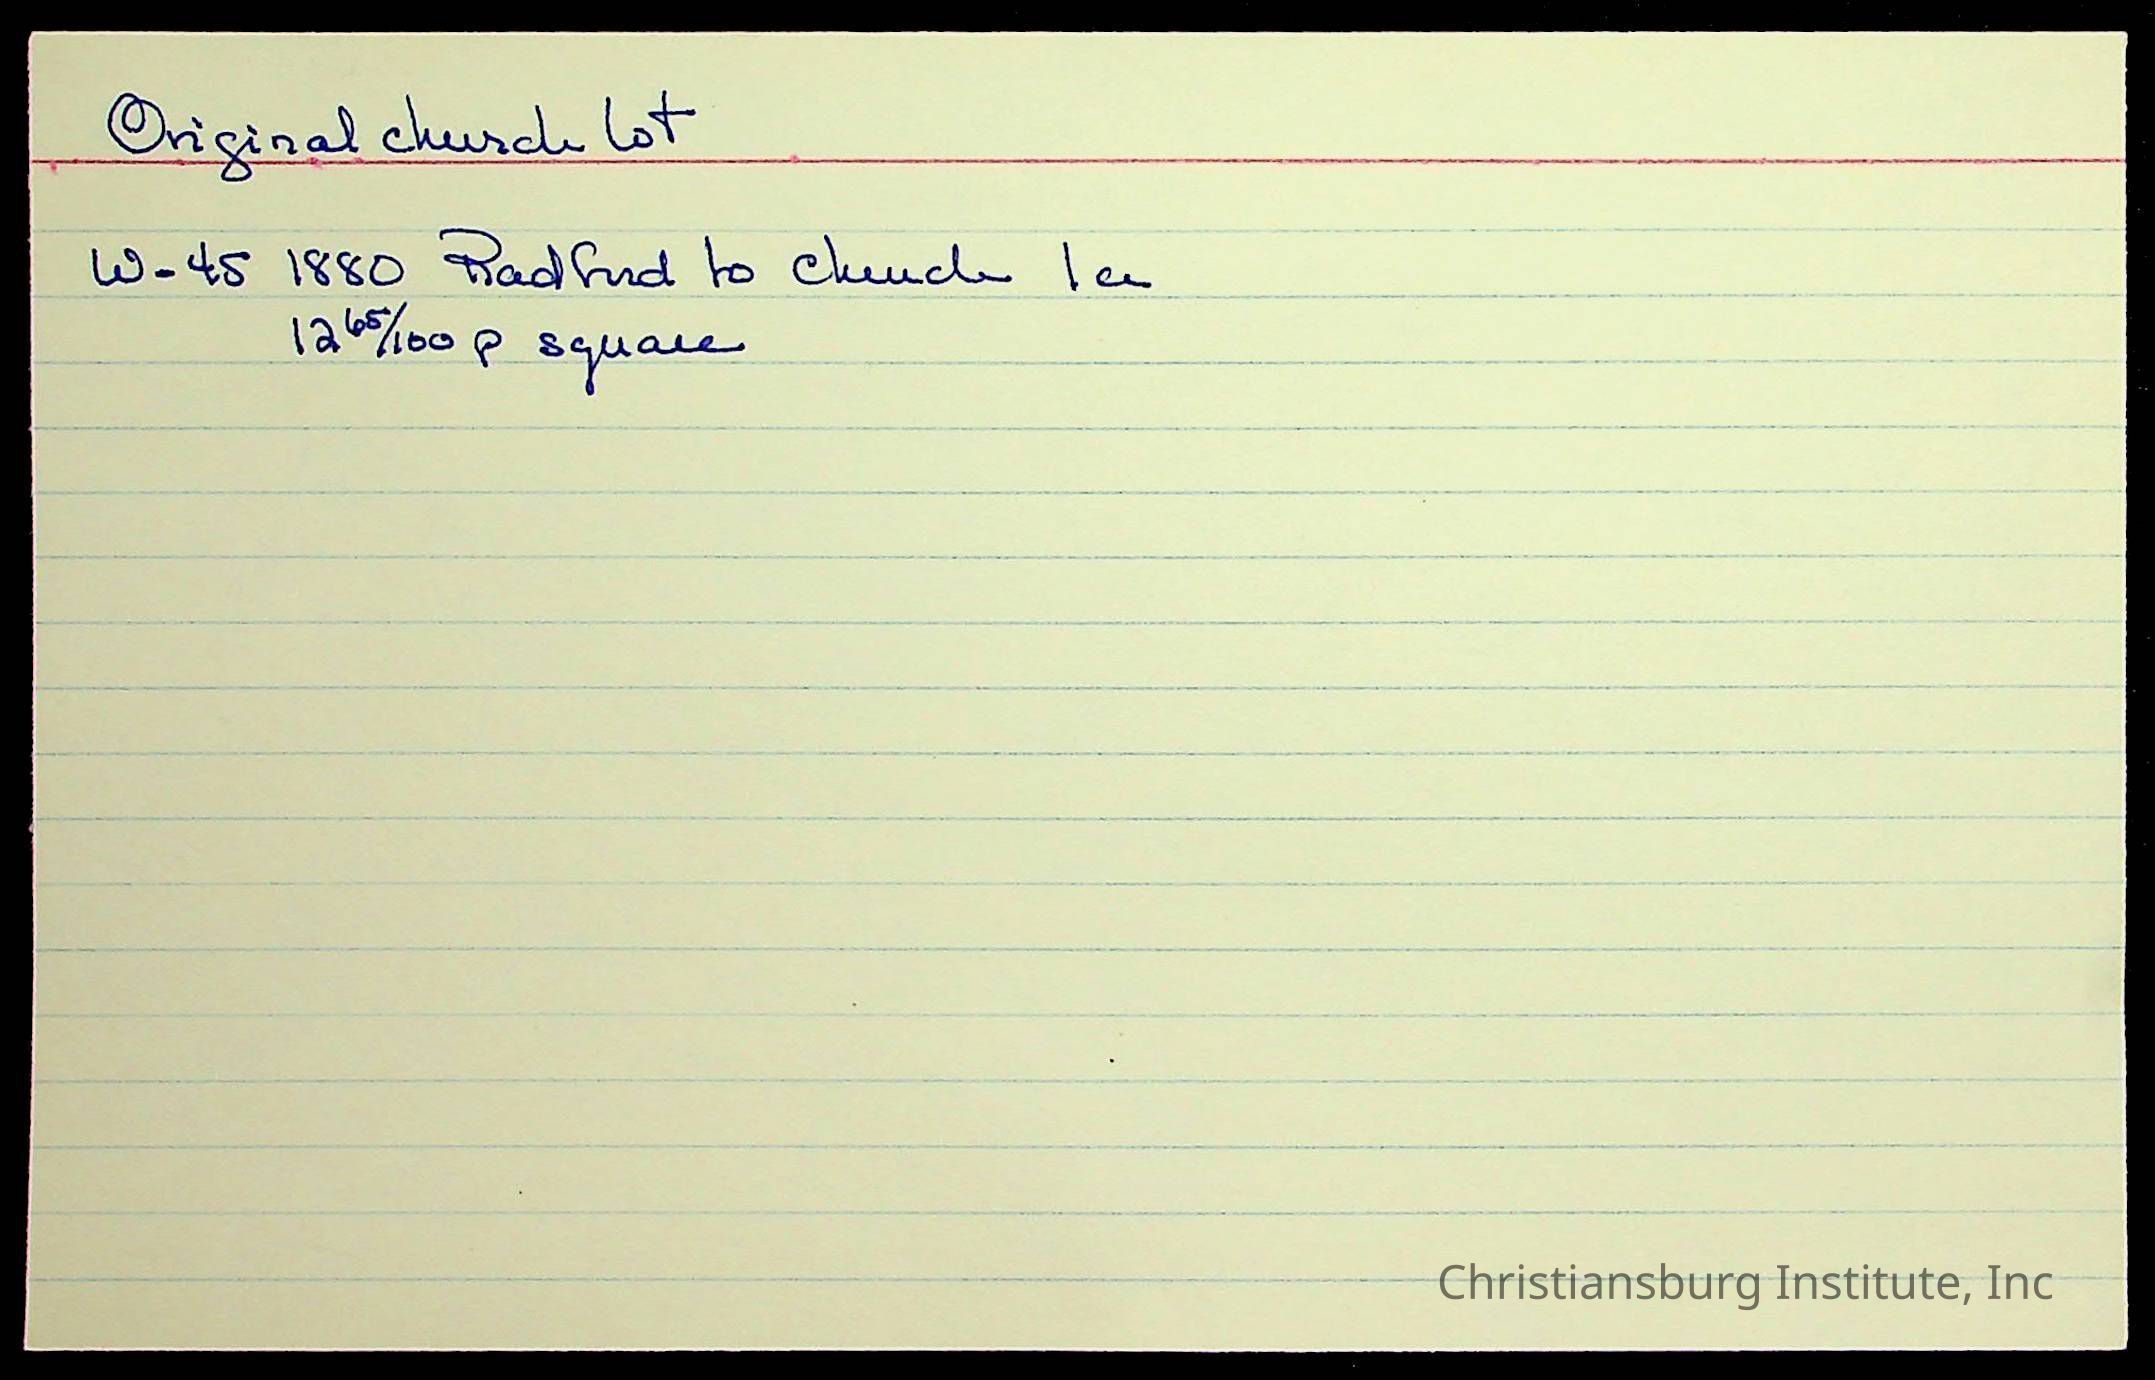 Original church lot
W-45 1880 Radford to Church 1 ac
12 65/100 p square
Christiansburg Institute, Inc